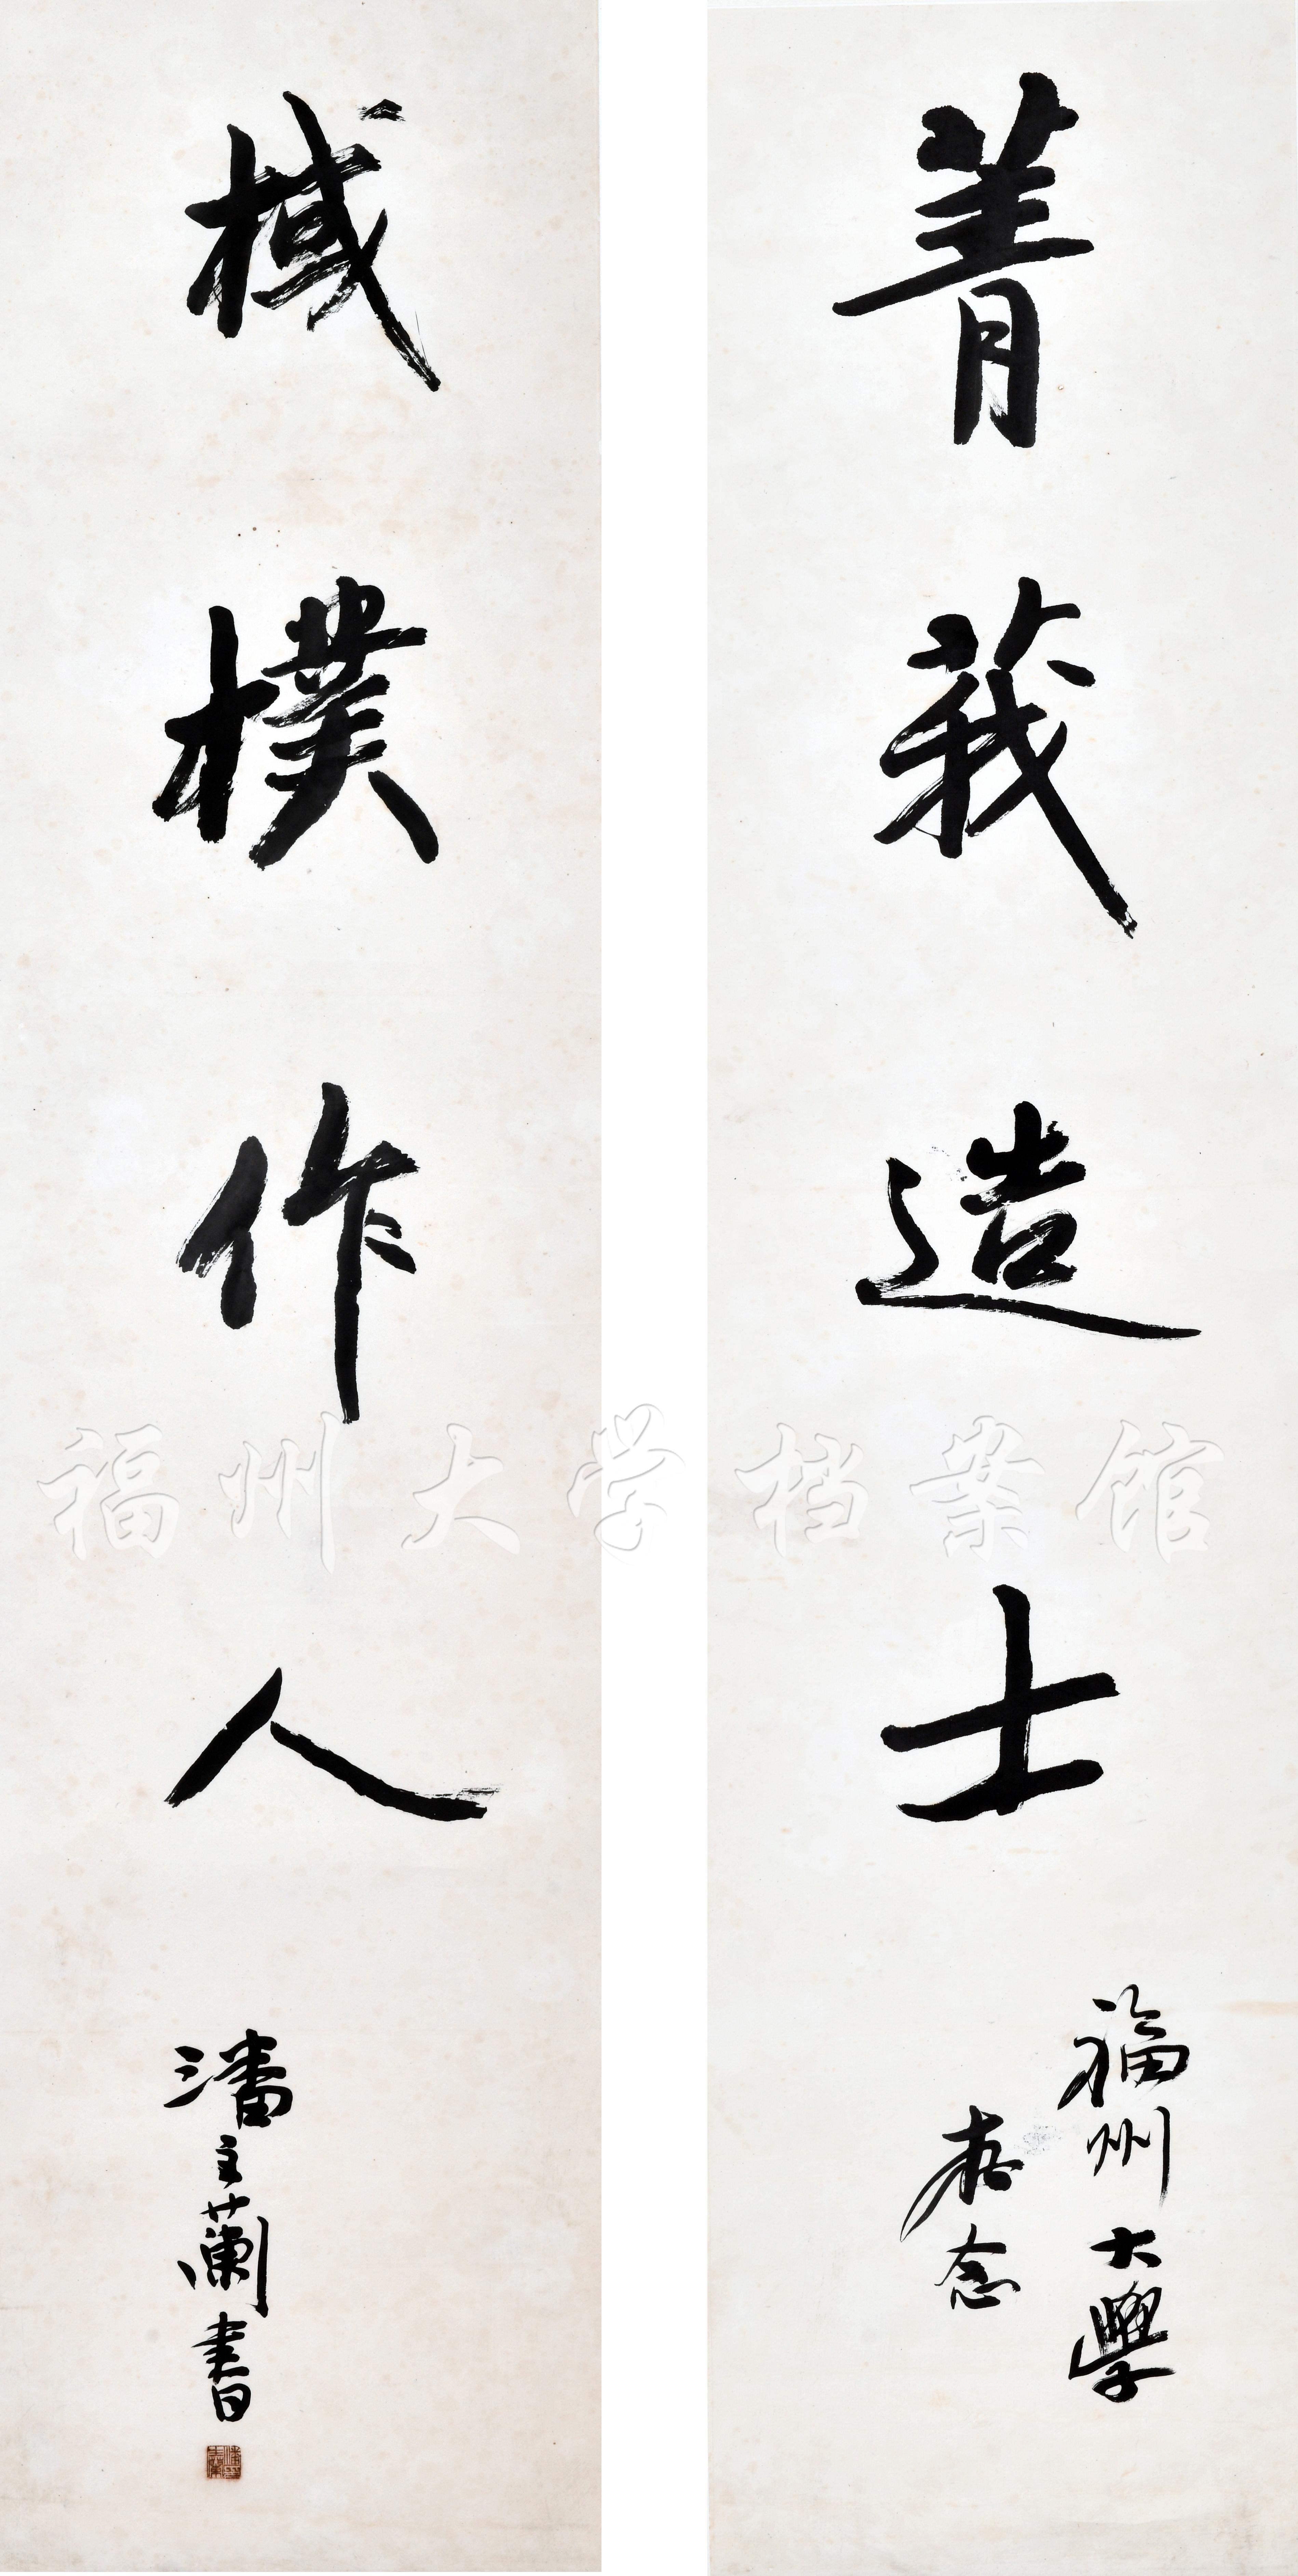 菁莪造士
福州大學
念
棫樸作人
潘主蘭書
福州大学档案馆